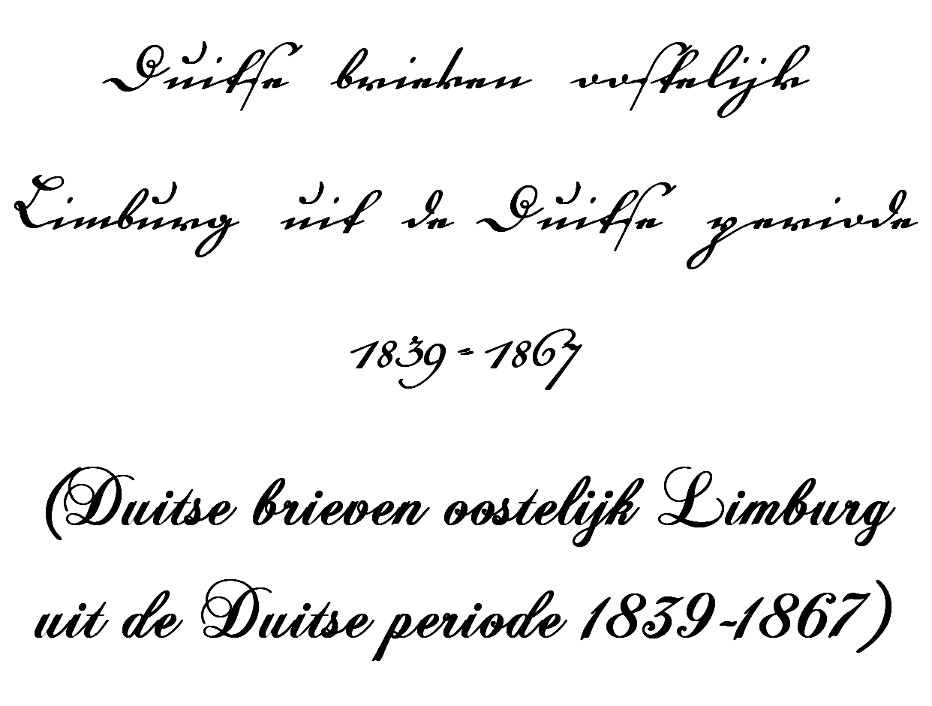 Duitse brieven oostelijk
Limburg uit de Duitse periode
1839 - 1867
(Duitse brieven oostelijk Limburg
uit de Duitse periode 1839-1867)